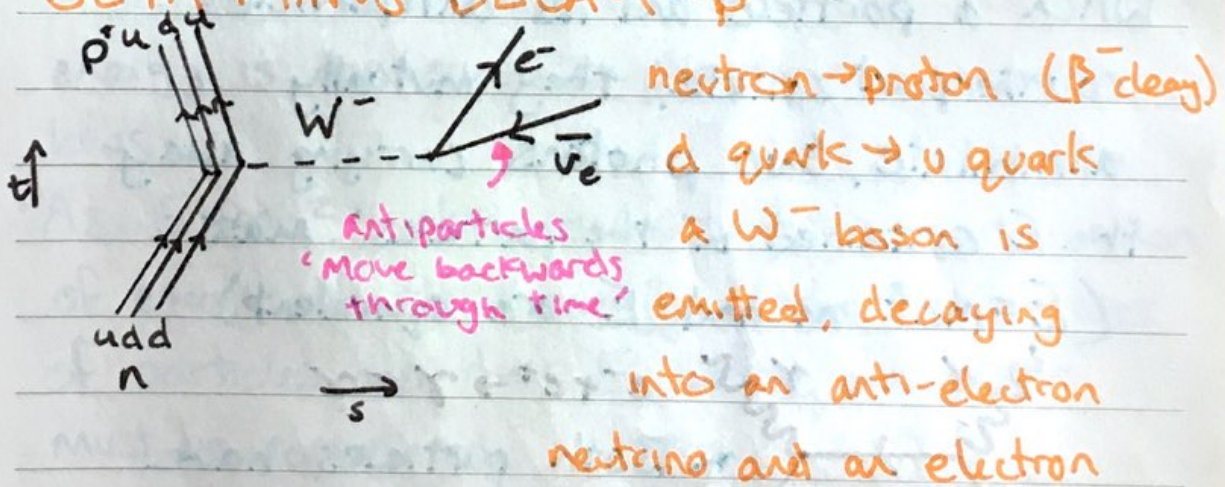 p⁺ u d u
W⁻
e⁻
ν̄e
t
udd
n
s
antiparticles
'move backwards
through time'
neutron → proton (β⁻ decay)
d quark → u quark
a W⁻ boson is
emitted, decaying
into an anti-electron
neutrino and an electron